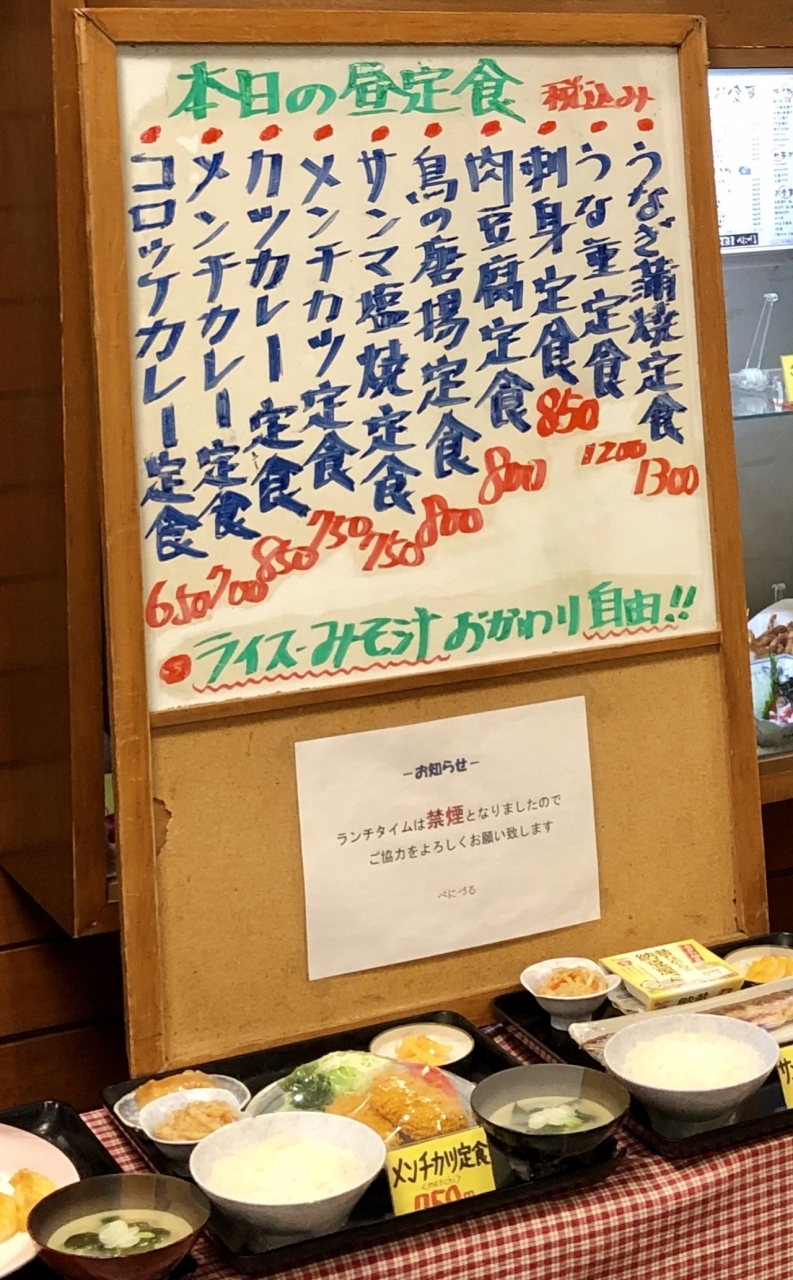 本日の昼定食 税込み
うなぎ蒲焼定食 1300
うな重定食 1200
刺身定食 850
肉豆腐定食 800
鳥の唐揚定食 800
サンマ塩焼定食 750
メンチカツ定食 750
カツカレー定食 850
メンチカレー定食 700
コロッケカレー定食 650
ライス-みそ汁おかわり自由!!
-お知らせ-
ランチタイムは禁煙となりましたので
ご協力をよろしくお願い致します
べにづる
メンチカツ定食